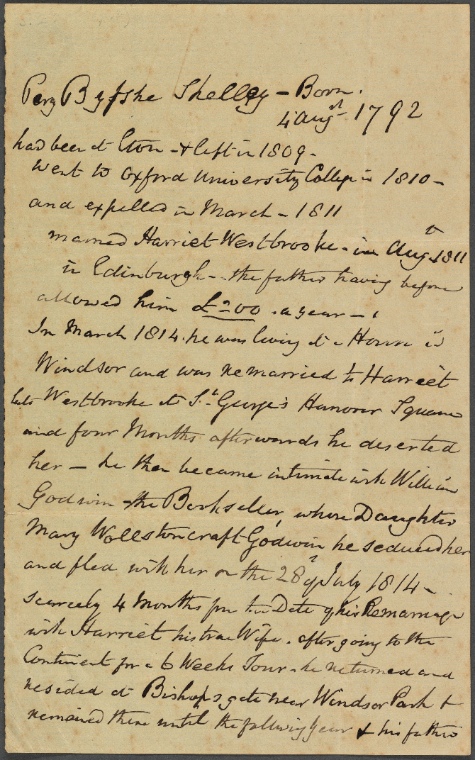 Percy Bysshe Shelley - Born.
4 Augst. 1792
had been at Eton - & left in 1809 -
went to Oxford University College in 1810 -
and expelled in March - 1811
married Harriet Westbrooke - in Augst 1811
in Edinburgh - the father having before
allowed him £200 . a year -
In March 1814 . he was living at a House in
Windsor and was remarried to Harriet
late Westbrooke at St. George's Hanover Square
and four Months afterwards he deserted
her - he then became intimate with William
Godwin - the Bookseller, whose Daughter
Mary Wollstoncraft Godwin he seduced her
and fled with her on the 28 of July 1814 -
scarcely 4 Months from the Date of his Remarriage
with Harriet his true Wife . after going to the
Continent for a 6 Weeks Tour - he returned and
resided at Bishops gate near Windsor Park &
remained there until the following year & his father